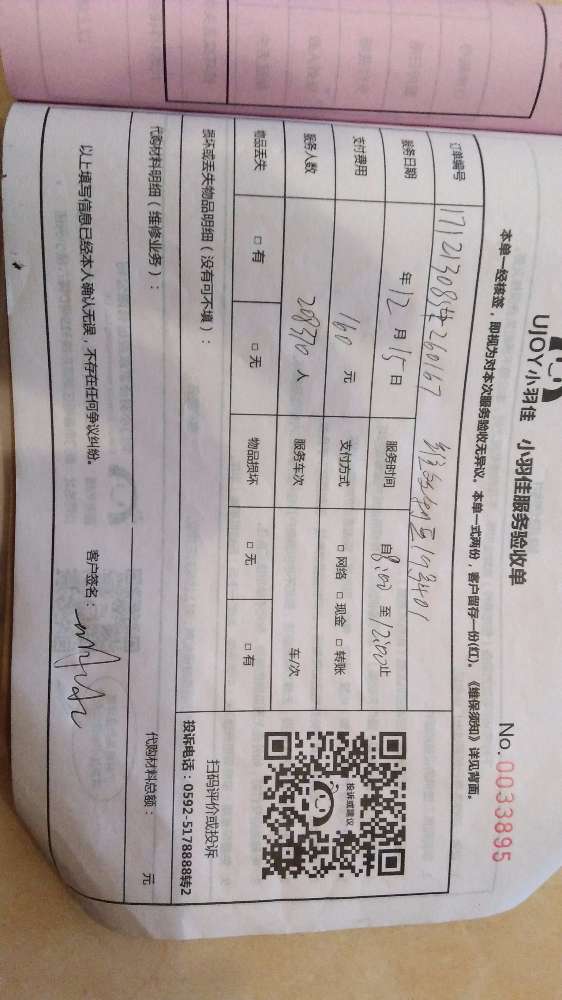 UJOY小羽佳 小羽佳服务验收单
No. 0033895
本单一经接签，即视为对本次服务验收无异议。本单一式两份，客户留存一份(红)。《维保须知》详见背面。
订单编号
服务日期 年 12 月 15 日 服务时间 自 8:00 至 12:00 止
支付费用 160 元 支付方式 □ 网络 □ 现金 □ 转账
服务人数 人 服务车次 车/次
物品丢失 □ 有 □ 无 物品损坏 □ 无 □ 有
损坏或丢失物品明细（没有可不填）：
投诉或建议
扫码评价或投诉
投诉电话：0592-5178888转2
代购材料明细（维修业务）： 代购材料总额： 元
以上填写信息已经本人确认无误，不存在任何争议纠纷。 客户签名：